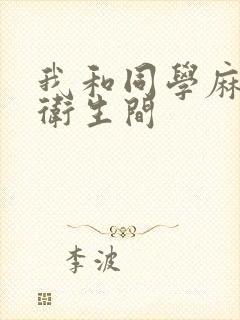 我和同學麻
衛生間
李波